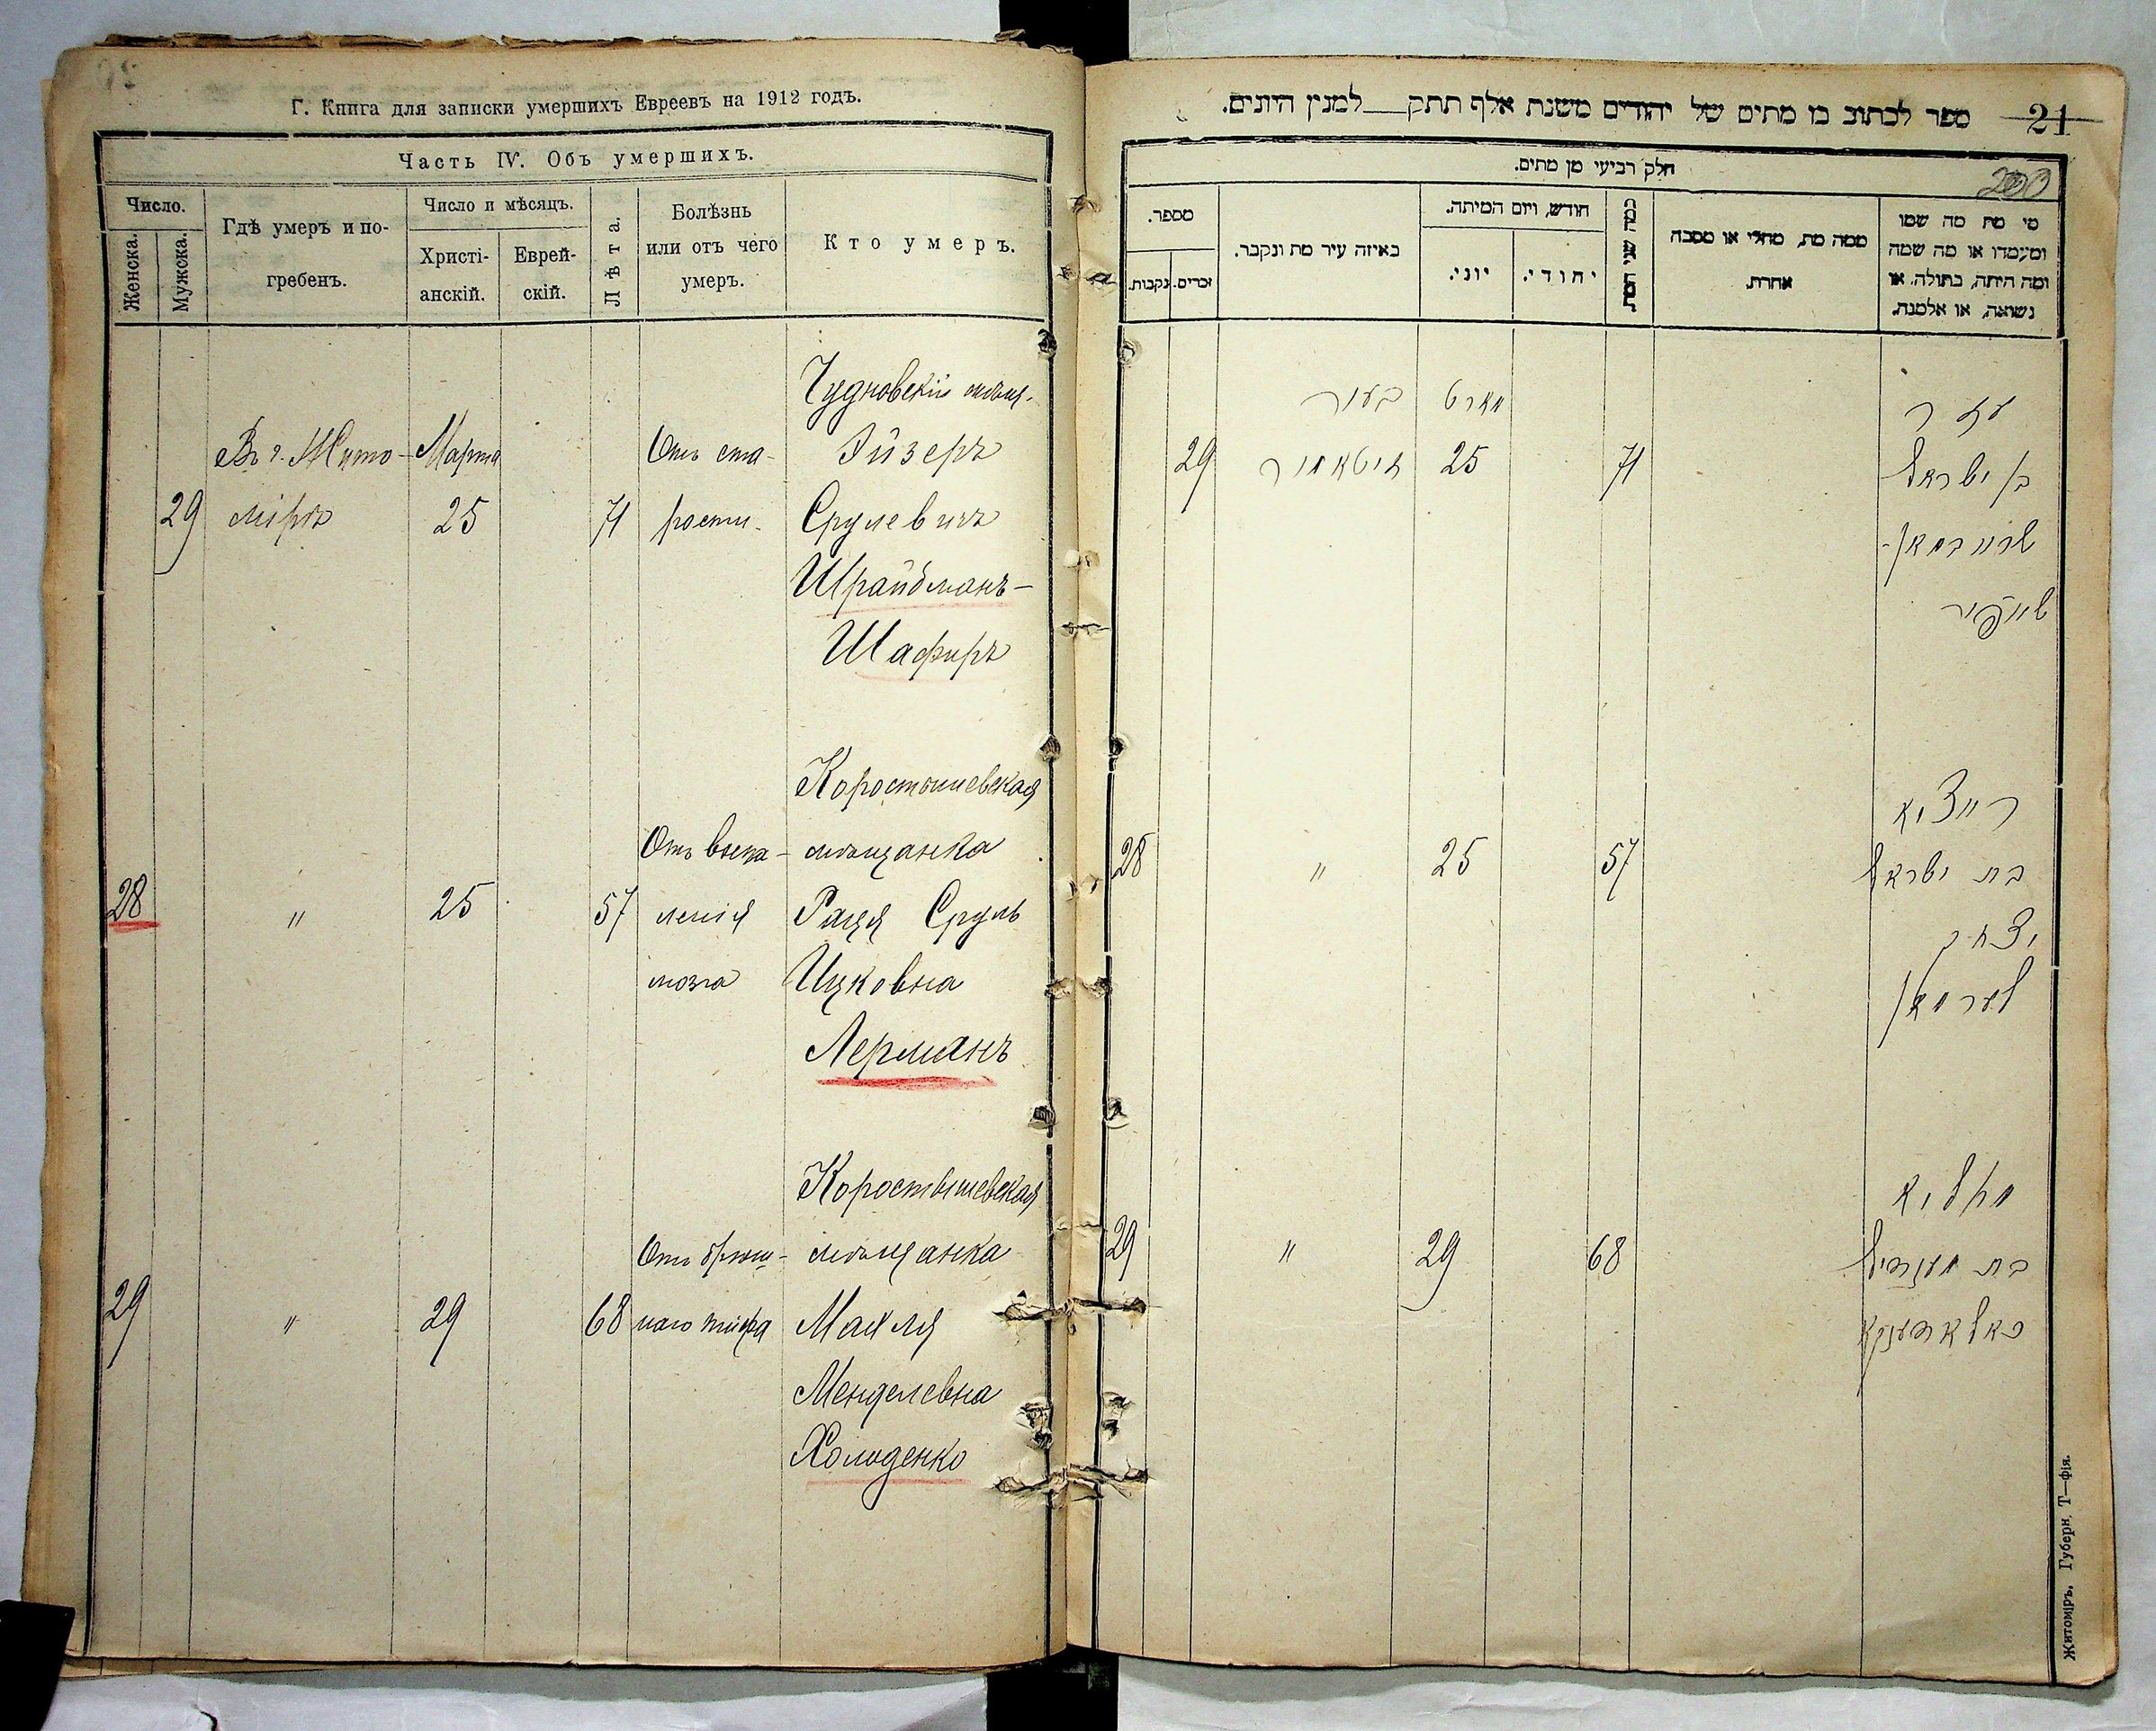 Г. Книга для записки умершихъ Евреевъ на 1912 годъ.
Часть IV. Объ умершихъ.
Число.
Женска.
Мужска.
Гдѣ умеръ и по-
гребенъ.
Число и мѣсяцъ.
Христі-
анскій.
Еврей-
скій.
Лѣта.
Болѣзнь
или отъ чего
умеръ.
Кто умеръ.
Чудновскій мѣщ.
Въ г. Жито- Марта Отъ ста- Эйзеръ
29 мірѣ 25 71 рости. Срулевичъ
Шрайбманъ-
Шафиръ
Коростышевская
Отъ воспа- мѣщанка
28 " 25 57 ленія Раця Сруль
мозга Ицковна
Лерманъ
Коростышевская
Отъ брюш- мѣщанка
29 " 29 68 наго тифа Махля
Менделевна
Холоденко
ספר לכתוב בו מתים של יהודים משנת אלף תתק___למנין היונים.
21
200
חלק רביעי מן מתים.
מספר.
נקבות.
זכרים.
באיזה עיר מת ונקבר.
חודש, ויום המיתה.
יוני.
יהודי.
כמה שני המת.
ממה מת, מחלי או מסבה
אחרת.
מי מת מה שמו
ומעמדו או מה שמה
ומה היתה, בתולה. או
נשואה, או אלמנה.
בעיר מארט
29 זיטאמיר 25 71 בן ישראל
שרייבמאן-
שאפיר
רייציא
28 " 25 57 בת ישראל
יצחק
לערמאן
מחליא
29 " 29 68 בת מענדיל
כאלאדענקא
Житоміръ, Губерн. Т—фія.